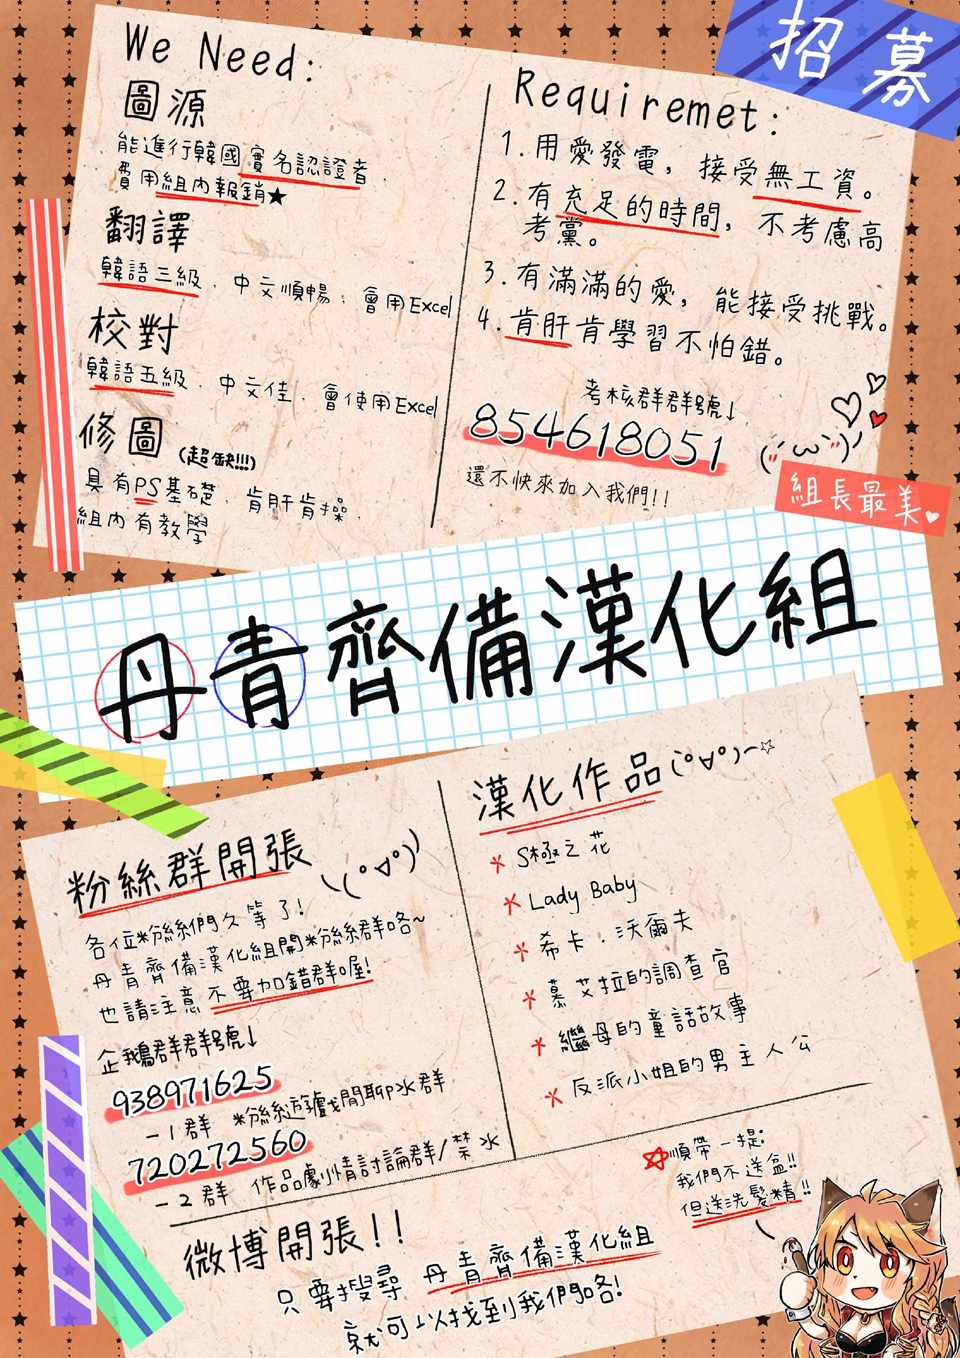 招募
We Need:
圖源
能進行韓國實名認證者.
費用組內報銷★
翻譯
韓語三級. 中文順暢. 會用Excel
校對
韓語五級. 中文佳. 會使用Excel
修圖(超缺!!!)
具有PS基礎. 肯肝肯操.
組內有教學
Requiremet:
1. 用愛發電，接受無工資。
2. 有充足的時間，不考慮高
考黨。
3. 有滿滿的愛，能接受挑戰。
4. 肯肝肯學習不怕錯。
考核群群號↓
854618051
還不快來加入我們!!
(´･ω･`)
組長最美♥
丹青齊備漢化組
粉絲群開張 \(°∀°)/
各位粉絲們久等了!
丹青齊備漢化組開粉絲群咯~
也請注意不要加錯群喔!
企鵝群群號↓
938971625
-1群 粉絲遊戲閒聊吹水群
720272560
-2群 作品劇情討論群/禁水
漢化作品(°∀°)~☆
* S極之花
* Lady Baby
* 希卡·沃爾夫
* 慕艾拉的調查官
* 繼母的童話故事
* 反派小姐的男主人公
順帶一提:
我們不送盆!!
但送洗髮精!!
微博開張!!
只要搜尋 丹青齊備漢化組
就可以找到我們咯!